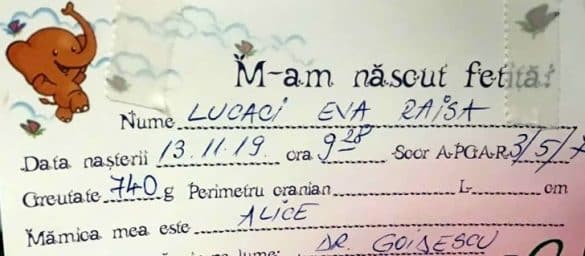 M-am născut fetiță!
Nume LUCACI EVA RAISA
Data nașterii 13.11.19 ora 9 28 Scor A.P.G.A.R 3/5/7
Greutate 740 g Perimetru cranian L cm
Mămica mea este ALICE
lume: DR. GOIDESCU